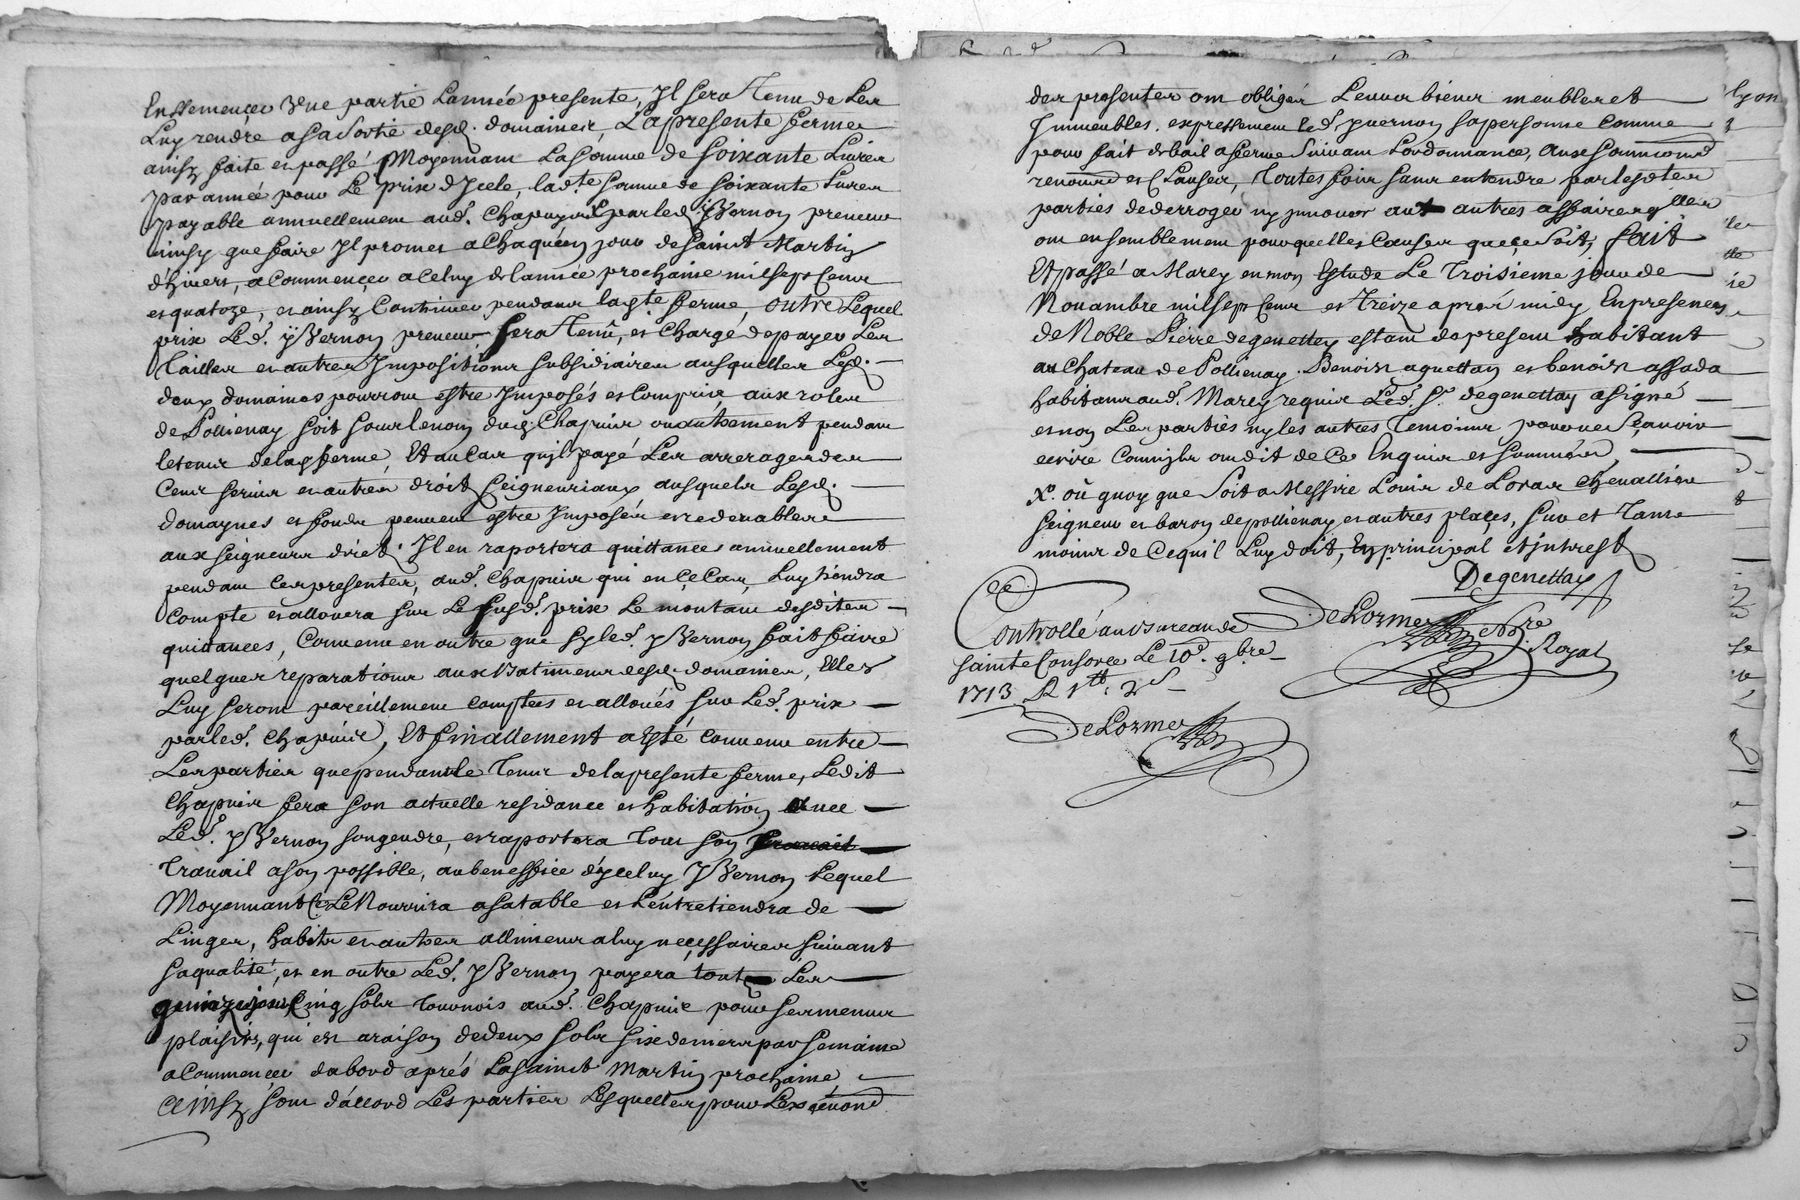 Enssemencer d'une partie Lannée presente, Jl sera Tenu de Les
Luy rendre a sa Sortie desd. domaines, La presente ferme
ainsy faite et passé Moyennant La Somme de Soixante Livres
par année pour Le prix d'Jcele, lad.te Somme de Soixante Livres
payable annuellement aud. Chapuys par led. yVernon preneur
ainsy que faire Jl promet a Chaquun jour de Saint Martin
d'hivers, a Commencer a Celuy de lannée prochaine mil sept Cent
et quatoze, et ainsy Continuer pendant lad.te ferme, outre Lequel
prix Led. yVernon preneur, sera Tenu, et Chargé de payer Les
Tailles et autres Jmpositions subsidiaires ausquelles Lesd.
deux domaines pourront estre Jmposés et Compris aux roles
de Pollienay soit sous le nom dud. Chapuis ou autrement pendant
le temps de lad. ferme, Et au Cas qu'jl payé Les arrerages des
Cens servis et autres droits seigneuriaux ausquels Lesd.
domaynes et fonds peuvent estre Jmposés et redevables
aux seigneurs direts. Jl en raportera quittances annuellement
pendant Ces presentes, aud. Chapuis qui en Ce Cas, Luy tiendra
Compte et allouera sur Le susd. prix Le montant desdites
quittances, Convenu en outre que sy led. yVernon fait faire
quelques reparations aux Batimens desd. domaines, Elles
Luy seront pareillement comptées et alloués sur Led. prix
par led. Chapuis, Et finallement a esté Convenu entre
Les parties que pendant le Tems de la presente ferme, Ledit
Chapuis fera son actuelle residance et habitation avec
Led. yVernon son gendre, et raportera tout son
Travail a son possible, au beneffice d'yceluy yVernon Lequel
Moyennant Ce Le Nourrira a sa table et L'entretiendra de
Linges, habits et autres allimens a luy necessaires suivant
sa qualité, et en outre Led. yVernon payera tout Les
quinze jours Cinq sols Tournois aud. Chapuis pour ses menus
plaisirs, qui est a raison de deux sols six deniers par semaine
a Commencer dabord aprés La saint Martin prochaine
ainsy sont d'accord Les parties Lesquelles pour L'exécution
des presentes ont obligés Leurs biens meubles et
Jmmeubles, expressement led. yvernon sa personne Comme
pour fait de bail a ferme Suivant Lordonnance, aux soumissions
renom.ons et Clauses, Toutes fois sans entendre par lesdites
parties de derroger ny jnnover aux autres affaires qu'elles
ont ensemblement pour quelles Causes que ce soit, fait
Et passé a Marcy en mon Estude Le Troisieme jour de
Nouambre mil sept Cent et Treize aprés midy En presences
de Noble Pierre degenettay estant de present habitant
au Chateau de Pollienay. Benoist aquettan et benoist assada
habitants aud. Marcy requis Led. Sr. degenettay a signé
et non Les parties ny les autres Temoins pour ne Sçauoir
écrire Comm'jls ont dit de Ce Enquis et Sommés,
X. où quoy que Soit a Messire Louis de Loras Chevallier
seigneur et baron de pollienay et autres places, sur et Tant
moins de Ce qu'il Luy doit, En principal et jntrest
Degenettay
DeLorme Nre
Royal
Controllé au Bureau de
sainte Consorce Le 10e. 9bre
1713. R 1tt. 2s
DeLorme
Lyon